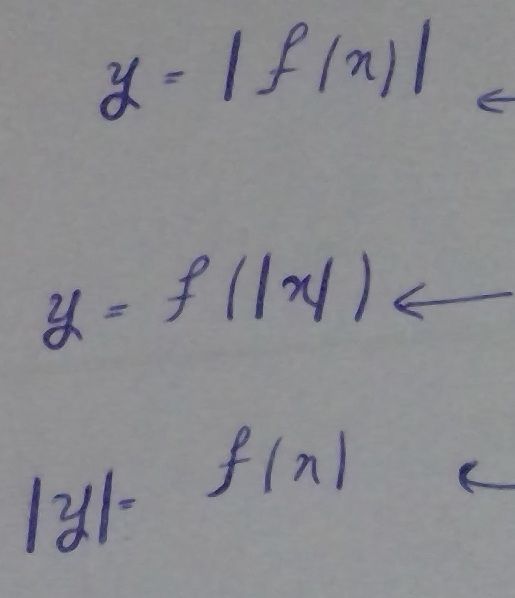 y = |f(x)| ←
y = f(|x|) ←
|y| = f(x) ←